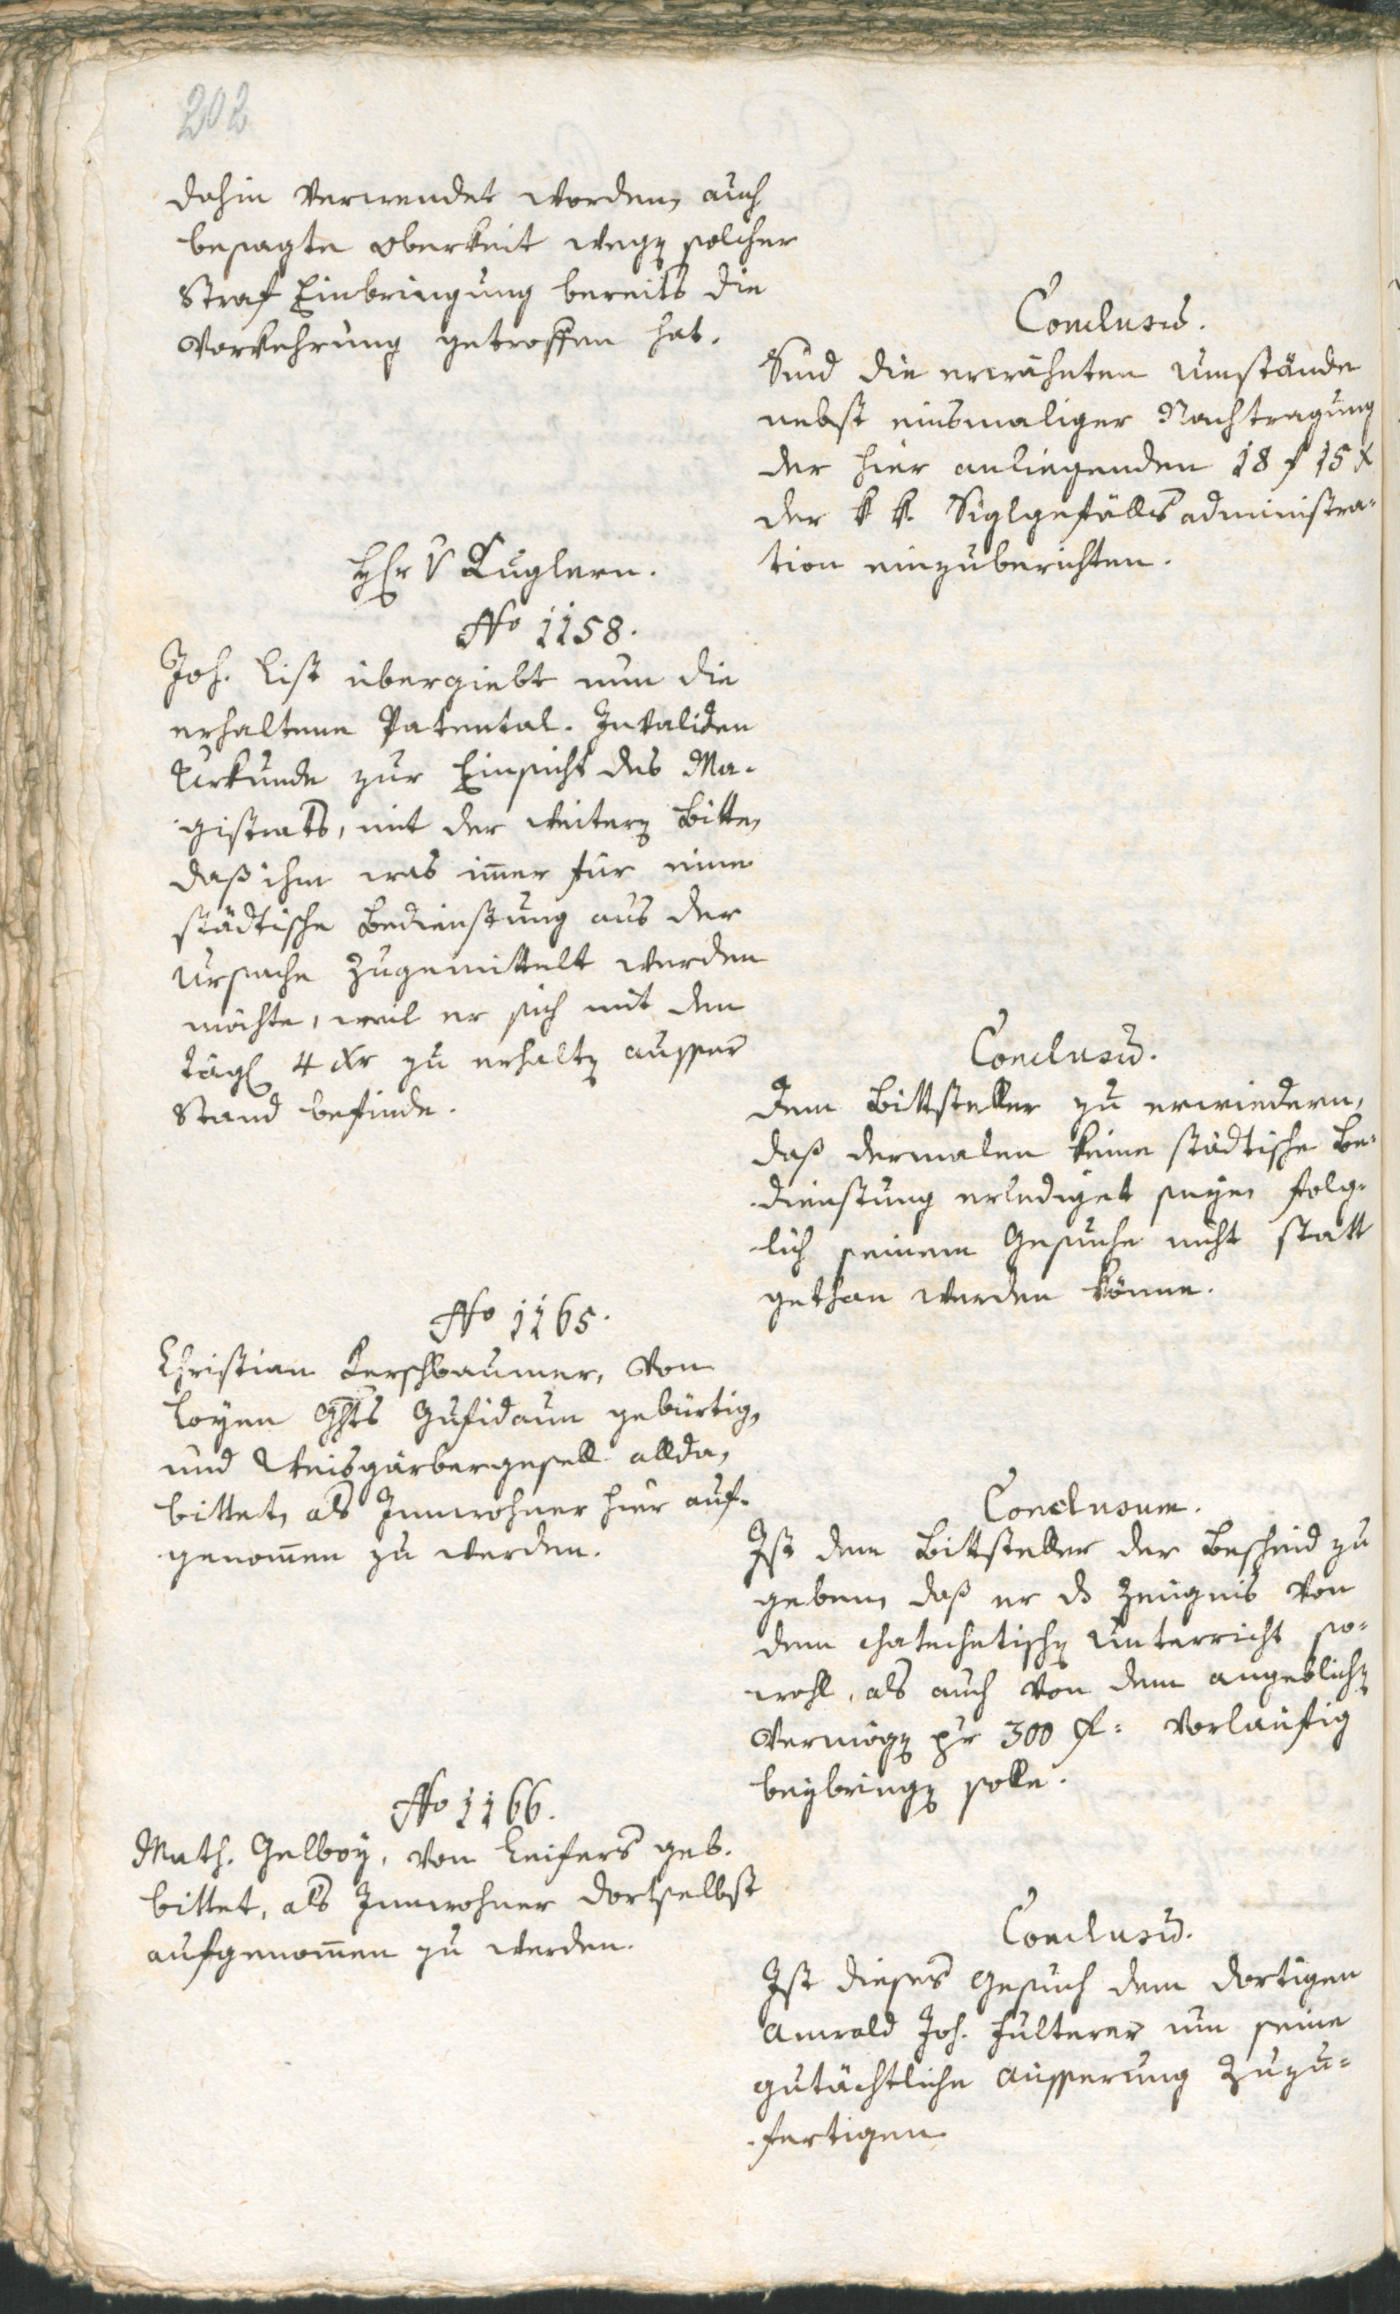 202
dahin verwendet worden, auch
besagte Oberkeit wegen solcher
Straf Einbringung bereits die
Vorkehrung getroffen hat.
Conclusũ.
Sind die erwähnten Umstände
nebst einsmaliger Nachtragung
der hier anliegenden 18 f 15 x
der k k. Siglgefällsadministra-
tion einzuberichten.
Hr v Kuglern.
No 1158.
Joh. List übergiebt nun die
erhaltene Patental. Invaliden
Urkunde zur Einsicht des Ma-
gistrats, mit der weitern Bitte,
daß ihm was im̄er für eine
städtische Bedienstung aus der
Ursache zugemittelt werden
möchte, weil er sich mit den
tägl 4 xr zu erhalten ausser
Stand befinde.
Conclusũ.
Dem Bittsteller zu erwiedern,
daß dermalen keine städtische Be-
dienstung erlediget seye, folg-
lich seinem Gesuche nicht statt
gethan werden könne.
No 1165.
Christian Kerschbaumer, von
Loyen Ghts Gufidaun gebürtig,
und Weisgärbergesell allda,
bittet, als Innwohner hier auf-
genom̄en zu werden.
Conclusum.
Ist dem Bittsteller der Bescheid zu
geben, daß er ds Zeugnis von
dem chatechetischen Unterricht so-
wohl, als auch von dem angeblichen
Vermögen pr 300 f: vorläufig
beybringen solle.
No 1166.
Math. Gelboy, von Leifers geb.
bittet, als Innwohner dortselbst
aufgenom̄en zu werden.
Conclusũ.
Ist dieses Gesuch dem dortigen
Anwald Joh. Fulterer um seine
gutächtliche Äusserung zuzu-
fertigen.